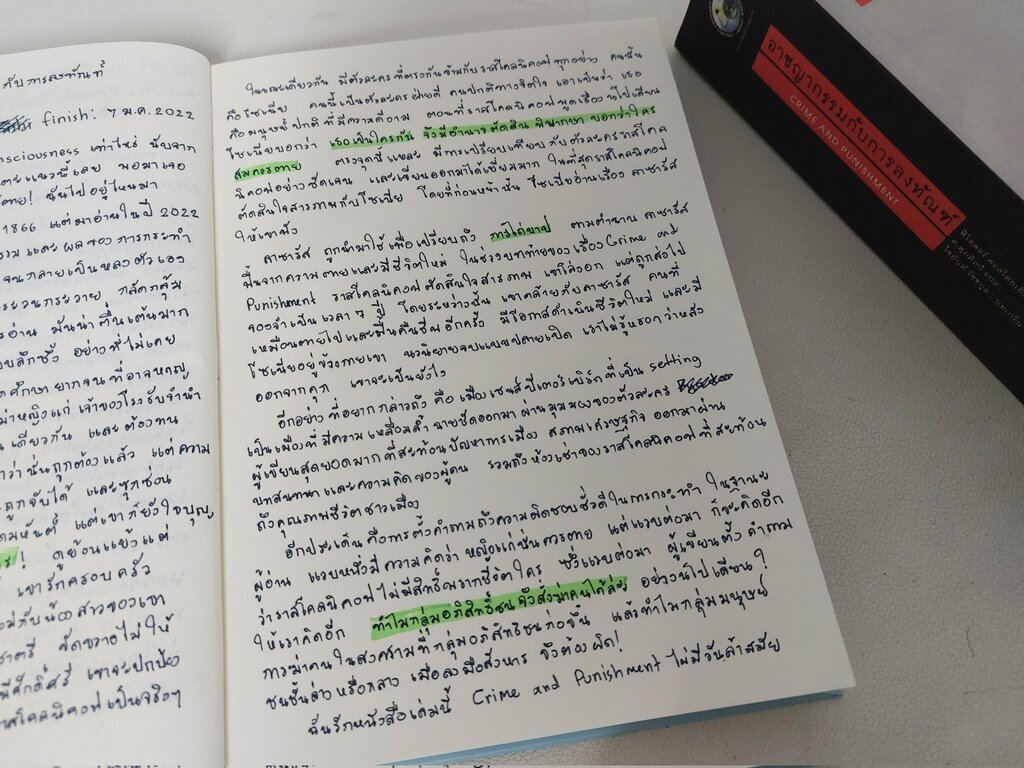 กับการลงทัณฑ์
finish: 7 ม.ค. 2022
consciousness เท่าไหร่ นับจาก
แนวนี้เลย พอมาเจอ
ตาย! ฉันไปอยู่ไหนมา
1866 แต่มาอ่านในปี 2022
และ ผลของการกระทำ
จนกลายเป็นหลงตัวเอง
กระวนกระวาย กลัดกลุ้ม
การอ่าน มันน่าตื่นเต้นมาก
ลึกซึ้ง อย่างที่ไม่เคย
ศึกษายากจนที่อาจหาญ
ฆ่าหญิงแก่ เจ้าของโรงรับจำนำ
เดียวกัน และต้องทน
ว่านั่นถูกต้องแล้ว แต่ความ
ถูกจับได้ และซุกซ่อน
แต่เขาก็ยังใจบุญ
ดูย้อนแย้งแต่
เขารักครอบครัว
กับน้องสาวของเขา
ขัดขวางไม่ให้
มีศักดิ์ศรี เขาจะปกป้อง
ราสโคลนิคอฟเป็นจริงๆ
ในขณะเดียวกัน มีตัวละครที่ตรงกันข้ามกับราสโคลนิคอฟทุกอย่าง คนนั้น
คือโซเนีย คนนี้เป็นตัวละครฝ่ายดี คนปกติทางจิตใจ เอาเป็นว่า เธอ
คือมนุษย์ปกติที่มีความดีงาม ตอนที่ราสโคลนิคอฟพูดเรื่องนโปเลียน
โซเนียบอกว่า เธอเป็นใครกัน จึงมีอำนาจตัดสิน พิพากษา บอกว่าใคร
สมควรตาย ตรงจุดนี้แหละ มีการเปรียบเทียบกับตัวละครราสโคล
นิคอฟอย่างชัดเจน และเขียนออกมาได้เยี่ยมมาก ในที่สุดราสโคลนิคอฟ
ตัดสินใจสารภาพกับโซเนีย โดยที่ก่อนหน้านั้น โซเนียอ่านเรื่อง ลาซารัส
ให้เขาฟัง
ลาซารัส ถูกนำมาใช้เพื่อเปรียบถึง การไถ่บาป ตามตำนาน ลาซารัส
ฟื้นจากความตายและมีชีวิตใหม่ ในช่วงบทท้ายของเรื่อง Crime and
Punishment ราสโคลนิคอฟตัดสินใจสารภาพ เขาโล่งอก แต่ถูกส่งไป
จองจำเป็นเวลา 7 ปี โดยระหว่างนั้น เขาคล้ายกับลาซารัส คนที่
เหมือนตายไปและฟื้นคืนชีพอีกครั้ง มีโอกาสดำเนินชีวิตใหม่ และมี
โซเนียอยู่ข้างกายเขา นวนิยายจบแบบปลายเปิด เราไม่รู้หรอกว่าหลัง
ออกจากคุก เขาจะเป็นยังไง
อีกอย่างที่อยากกล่าวถึง คือ เมืองเซนส์ปีเตอร์เบิร์กที่เป็น setting
เป็นเมืองที่มีความเหลื่อมล้ำ ฉายชัดออกมา ผ่านมุมมองของตัวละคร
ผู้เขียนสุดยอดมากที่สะท้อนปัญหาการเมือง สภาพเศรษฐกิจ ออกมาผ่าน
บทสนทนาและความคิดของผู้คน รวมถึงห้องเช่าของราสโคลนิคอฟที่สะท้อน
ถึงคุณภาพชีวิตชาวเมือง
อีกประเด็น คือการตั้งคำถามถึงความผิดชอบชั่วดีในการกระทำ ในฐานะ
ผู้อ่าน แวบหนึ่งมีความคิดว่า หญิงแก่นั่นควรตาย แต่แวบต่อมา ก็จะคิดอีก
ว่าราสโคลนิคอฟไม่มีสิทธิ์พรากชีวิตใคร ซึ่งแวบต่อมา ผู้เขียนตั้งคำถาม
ให้เราคิดอีก ทำไมกลุ่มอภิสิทธิ์ชน จึงสั่งฆ่าคนได้ล่ะ อย่างนโปเลียน?
การฆ่าคนในสงครามที่กลุ่มอภิสิทธิชนก่อขึ้น แล้วทำไมกลุ่มมนุษย์
ชนชั้นล่างหรือกลาง เมื่อลงมือสังหาร จึงต้องผิด!
ฉันรักหนังสือเล่มนี้ Crime and Punishment ไม่มีวันล้าสมัย
อาชญากรรมกับการลงทัณฑ์
CRIME AND PUNISHMENT